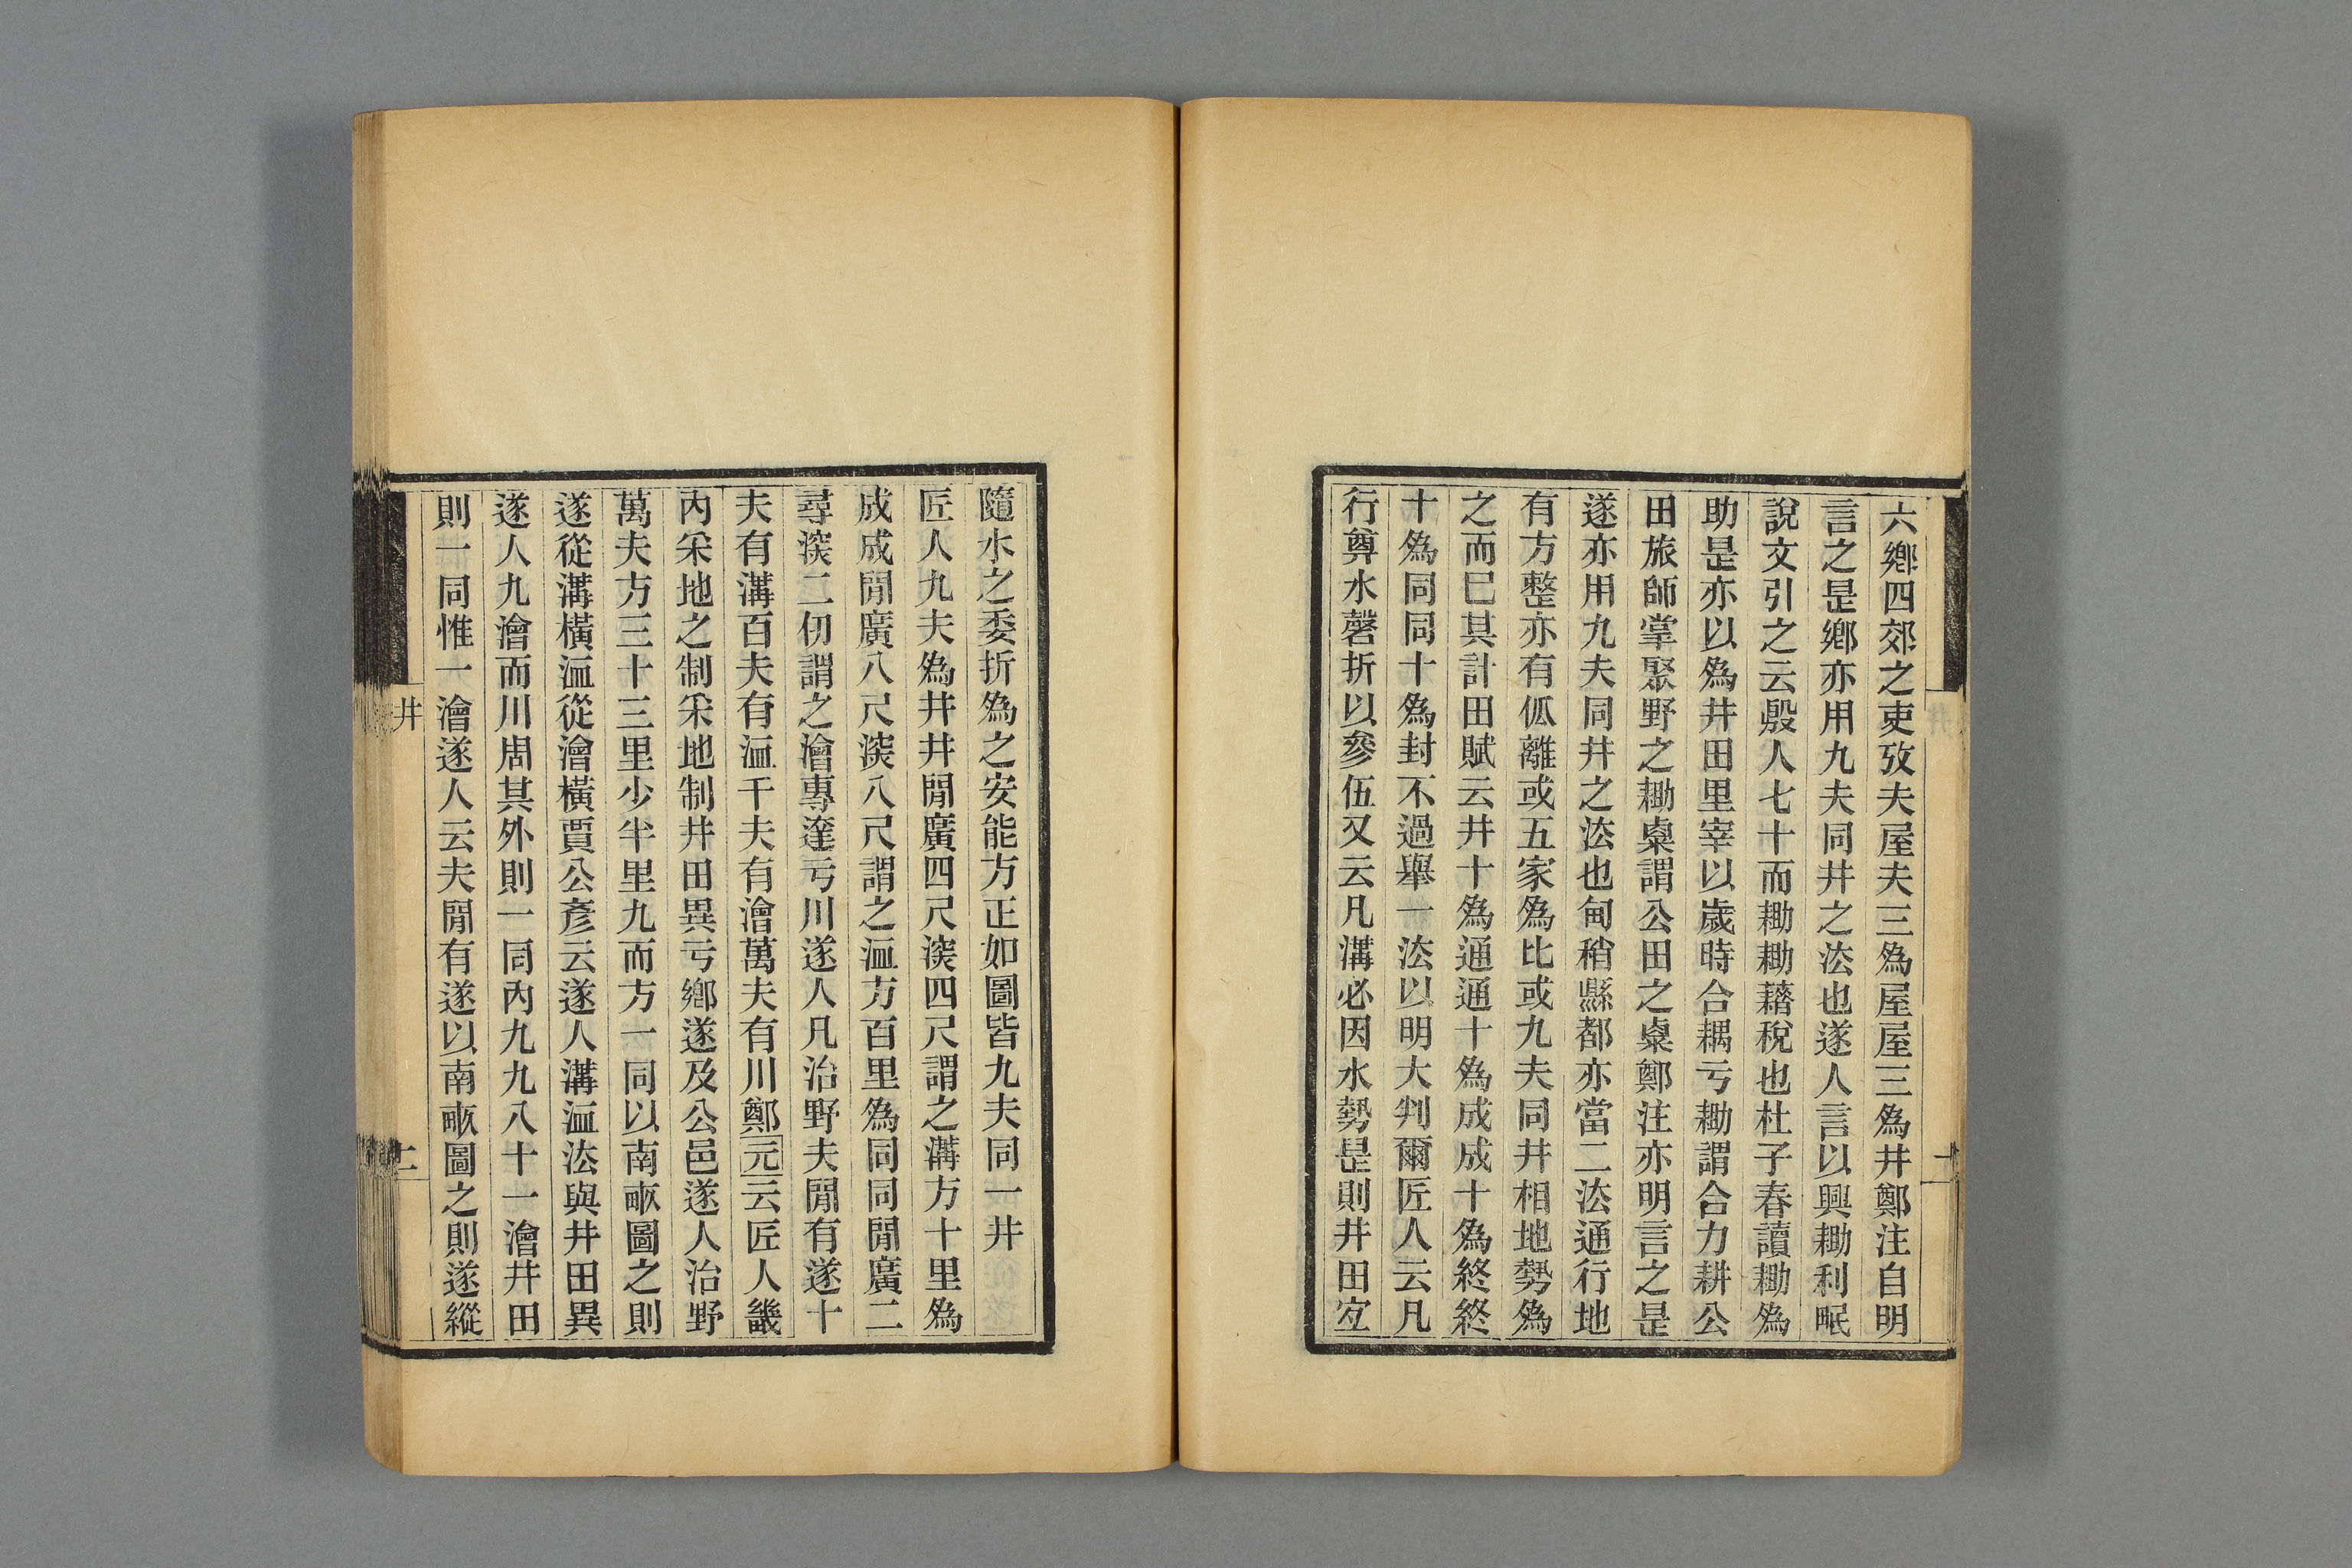 六鄉四郊之吏攷夫屋夫三爲屋屋三爲井鄭注自明
言之是鄉亦用九夫同井之法也遂人言以興耡利甿
說文引之云殷人七十而耡耡藉稅也杜子春讀耡爲
助是亦以爲井田里宰以歲時合耦亏耡謂合力耕公
田旅師掌聚野之耡粟謂公田之粟鄭注亦明言之是
遂亦用九夫同井之法也甸稍縣都亦當二法通行地
有方整亦有佤離或五家爲比或九夫同井相地勢爲
之而已其計田賦云井十爲通通十爲成成十爲終終
十爲同同十爲封不過舉一法以明大判爾匠人云凡
行奠水磬折以參伍又云凡溝必因水勢是則井田定
隨水之委折爲之安能方正如圖皆九夫同一井
匠人九夫爲井井閒廣四尺深四尺謂之溝方十里爲
成成閒廣八尺深八尺謂之洫方百里爲同同閒廣二
尋深二仞謂之澮專達亏川遂人凡治野夫閒有遂十
夫有溝百夫有洫千夫有澮萬夫有川鄭元云匠人畿
內采地之制采地制井田異亏鄉遂及公邑遂人治野
萬夫方三十三里少半里九而方一同以南畮圖之則
遂從溝橫洫從澮橫賈公彥云遂人溝洫法與井田異
遂人九澮而川周其外則一同內九九八十一澮井田
則一同惟一澮遂人云夫閒有遂以南畮圖之則遂縱
井
二